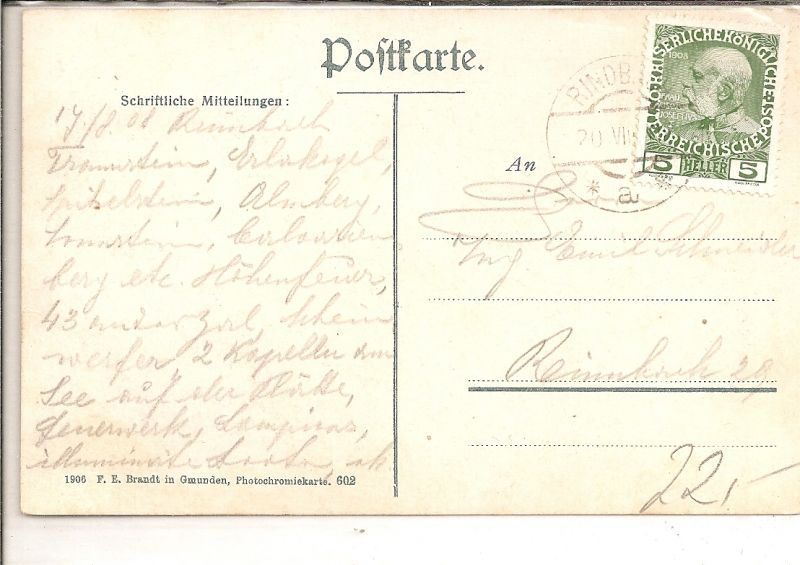 Postkarte.
Schriftliche Mitteilungen:
17/8. 08 Rinnbach
Traunstein, Erlakogel,
Spitzelstein, Almberg,
Sonnstein, Calvarien
berg etc. Höhenfeuer,
43 an der Zal, Schein
werfer, 2 Kapellen am
See auf der Plätte,
Feuerwerk, Lampions,
illuminirte Boote, etc
1906 F. E. Brandt in Gmunden, Photochromiekarte. 602
RINDB
20 VIII
* a *
KAISERLICHE KÖNIGLICHE
ÖSTERREICHISCHE POST
1908
FRANZ
JOSEF I
5 HELLER 5
An
Ing. Emil Schneider
Rinnbach 29
22,-